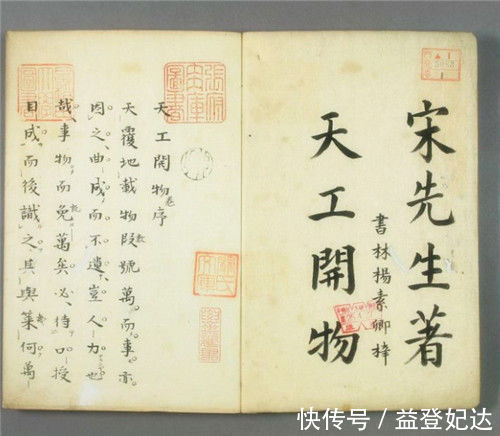 宋先生著
天工開物
書林楊素卿梓
天工開物卷序
天覆地載物段號萬而事亦
因之曲成而不遺豈人力也
哉事物而免萬矣必待口授
目成而後識之其與筞何萬
快传号 / 益登妃达